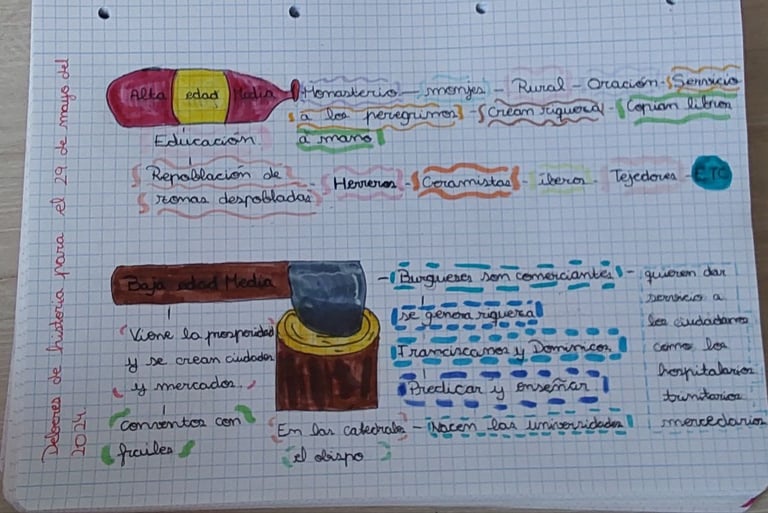 Deberes de historia para el 29 de mayo del
2024
Alta edad Media Monasterio - monjes - Rural - Oración - Servicio
a los peregrinos - Crean riqueza - Copian libros
a mano
Educación
Repoblación de
zonas despobladas - Herreros - Ceramistas - iberos - Tejedores - ETC
Baja edad Media
Viene la prosperidad
y se crean ciudades
y mercados.
conventos con
frailes
- Burgueses son comerciantes -
se genera riqueza
Franciscanos y Dominicos
Predicar y enseñar
quieren dar
servicio a
los ciudadanos
como los
hospitalarios
trinitarios
mercedarios
En las catedrales - Nacen las universidades
el obispo